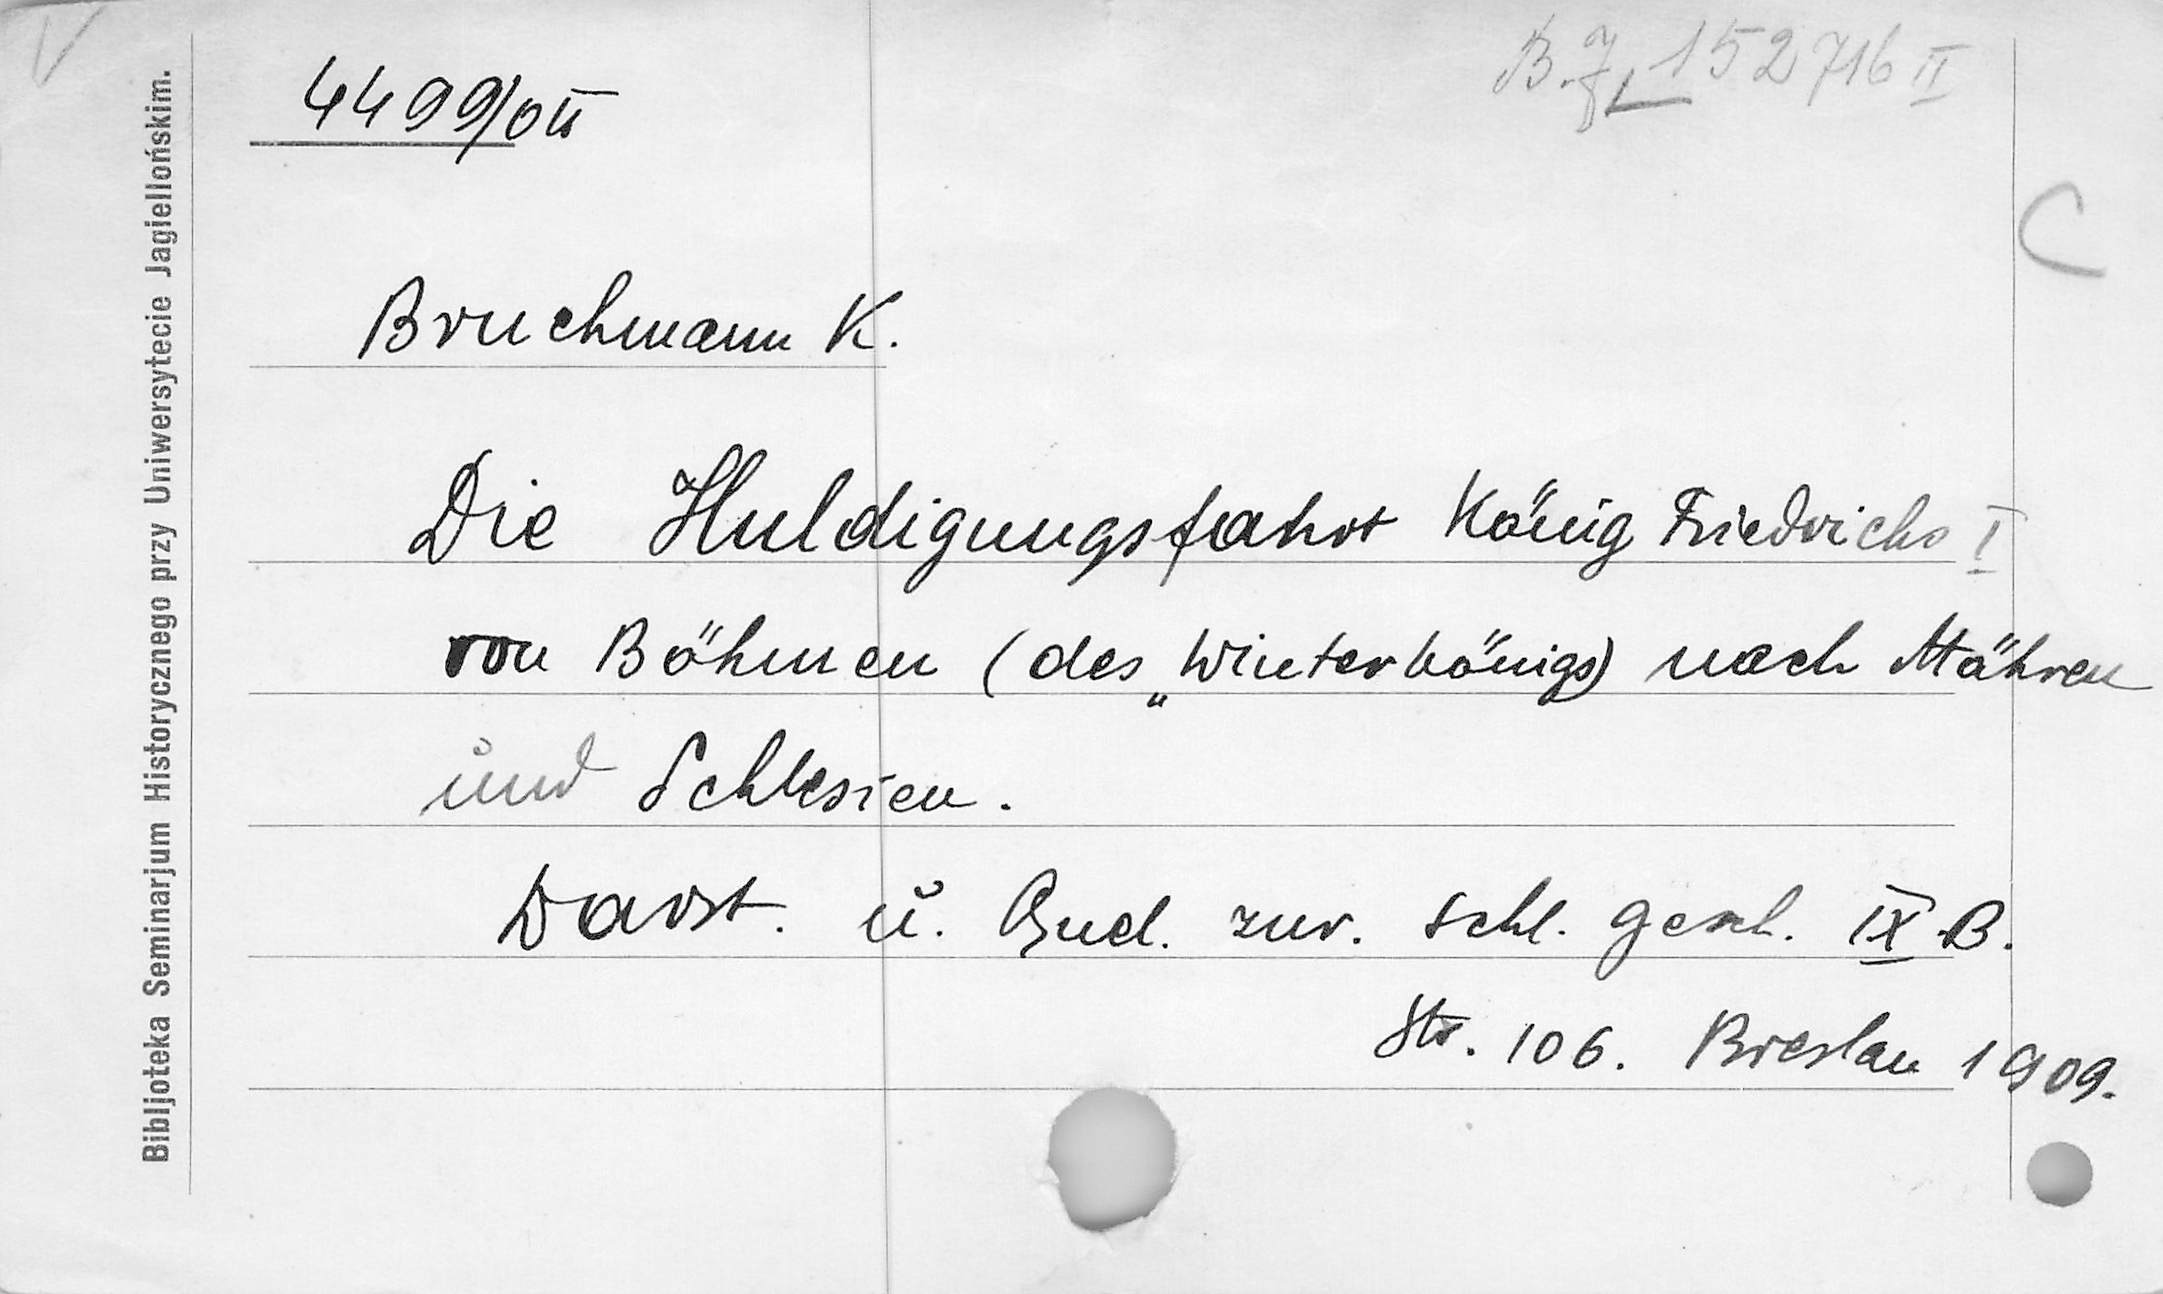 V
4499/oII
B.J. 152716 II
C
Bruchmann K.
Die Huldigungsfahrt König Friedrichs I
von Böhmen (des „Winterkönigs) nach Mähren
und Schlesien.
Darst. u. Quel. zur. schl. gesch. IX B.
Str. 106. Breslau 1909.
Bibljoteka Seminarjum Historycznego przy Uniwersytecie Jagiellońskim.